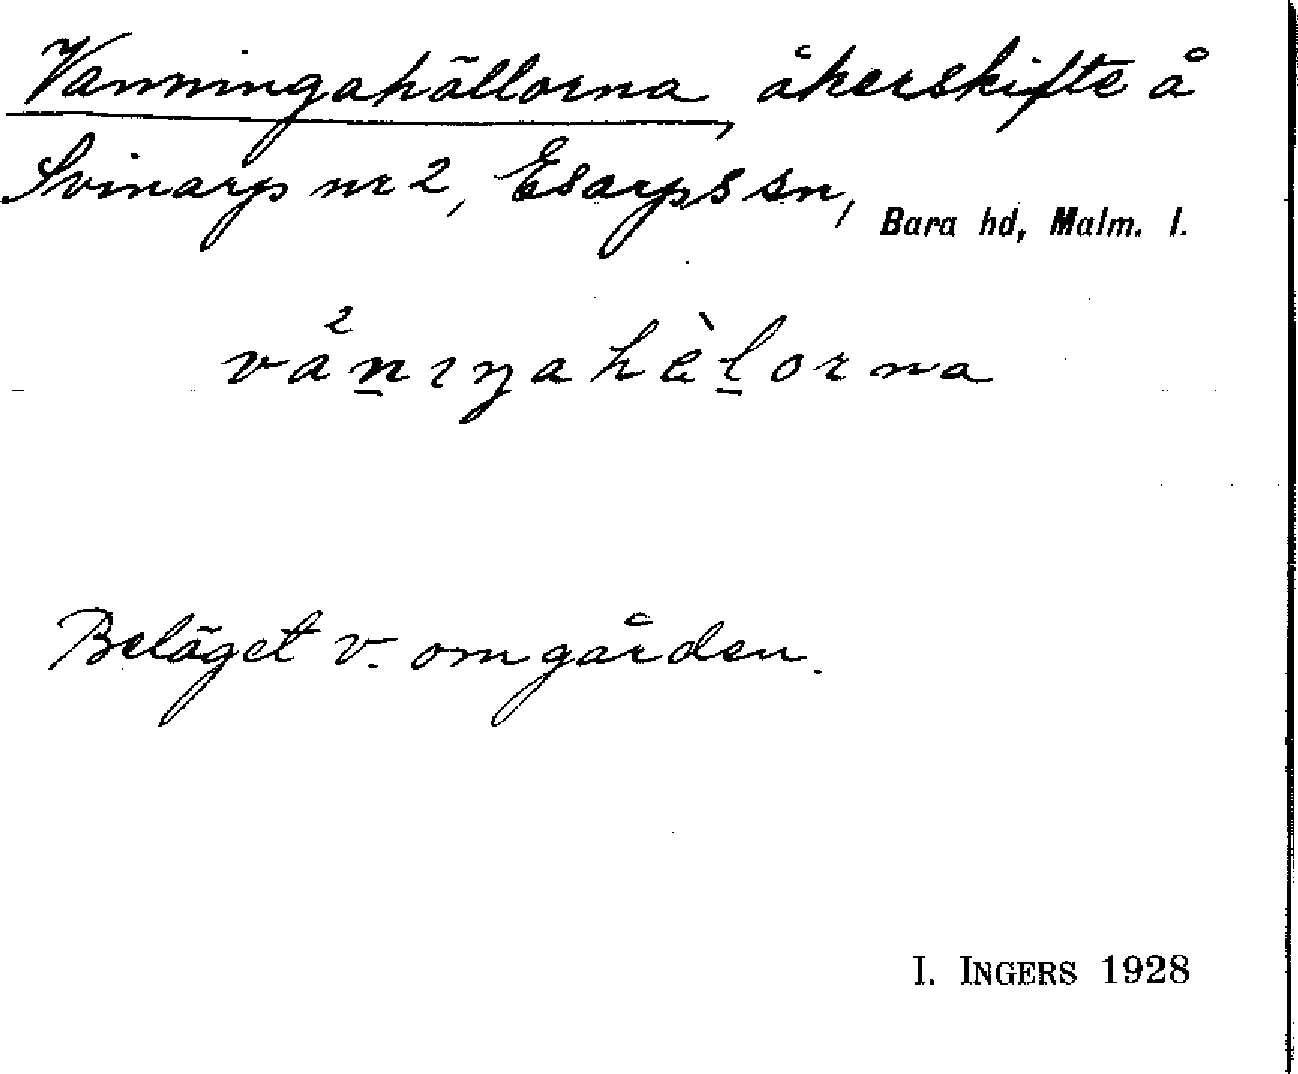 Vanningahällorna, åkerskifte å
Svinarp nr 2, Esarps sn, Bara hd, Malm. l.
vånıŋahèlorna
Beläget v. om gården.
I. INGERS 1928